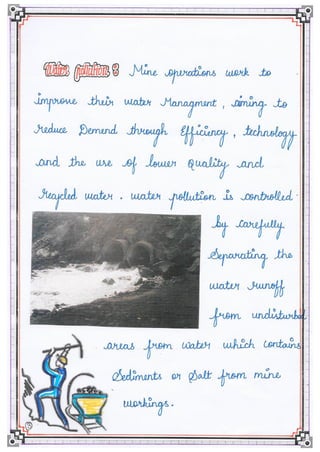 Water pollution : Mine operations work to
improve their water Managment, aiming to
reduce Demend through Efficiency, technology
and the use of lower Quality and
Recycled water. water pollution is controlled
by carefully
Separating the
water runoff
from undisturbed
areas from water which contains
Sediments or Salt from mine
workings.